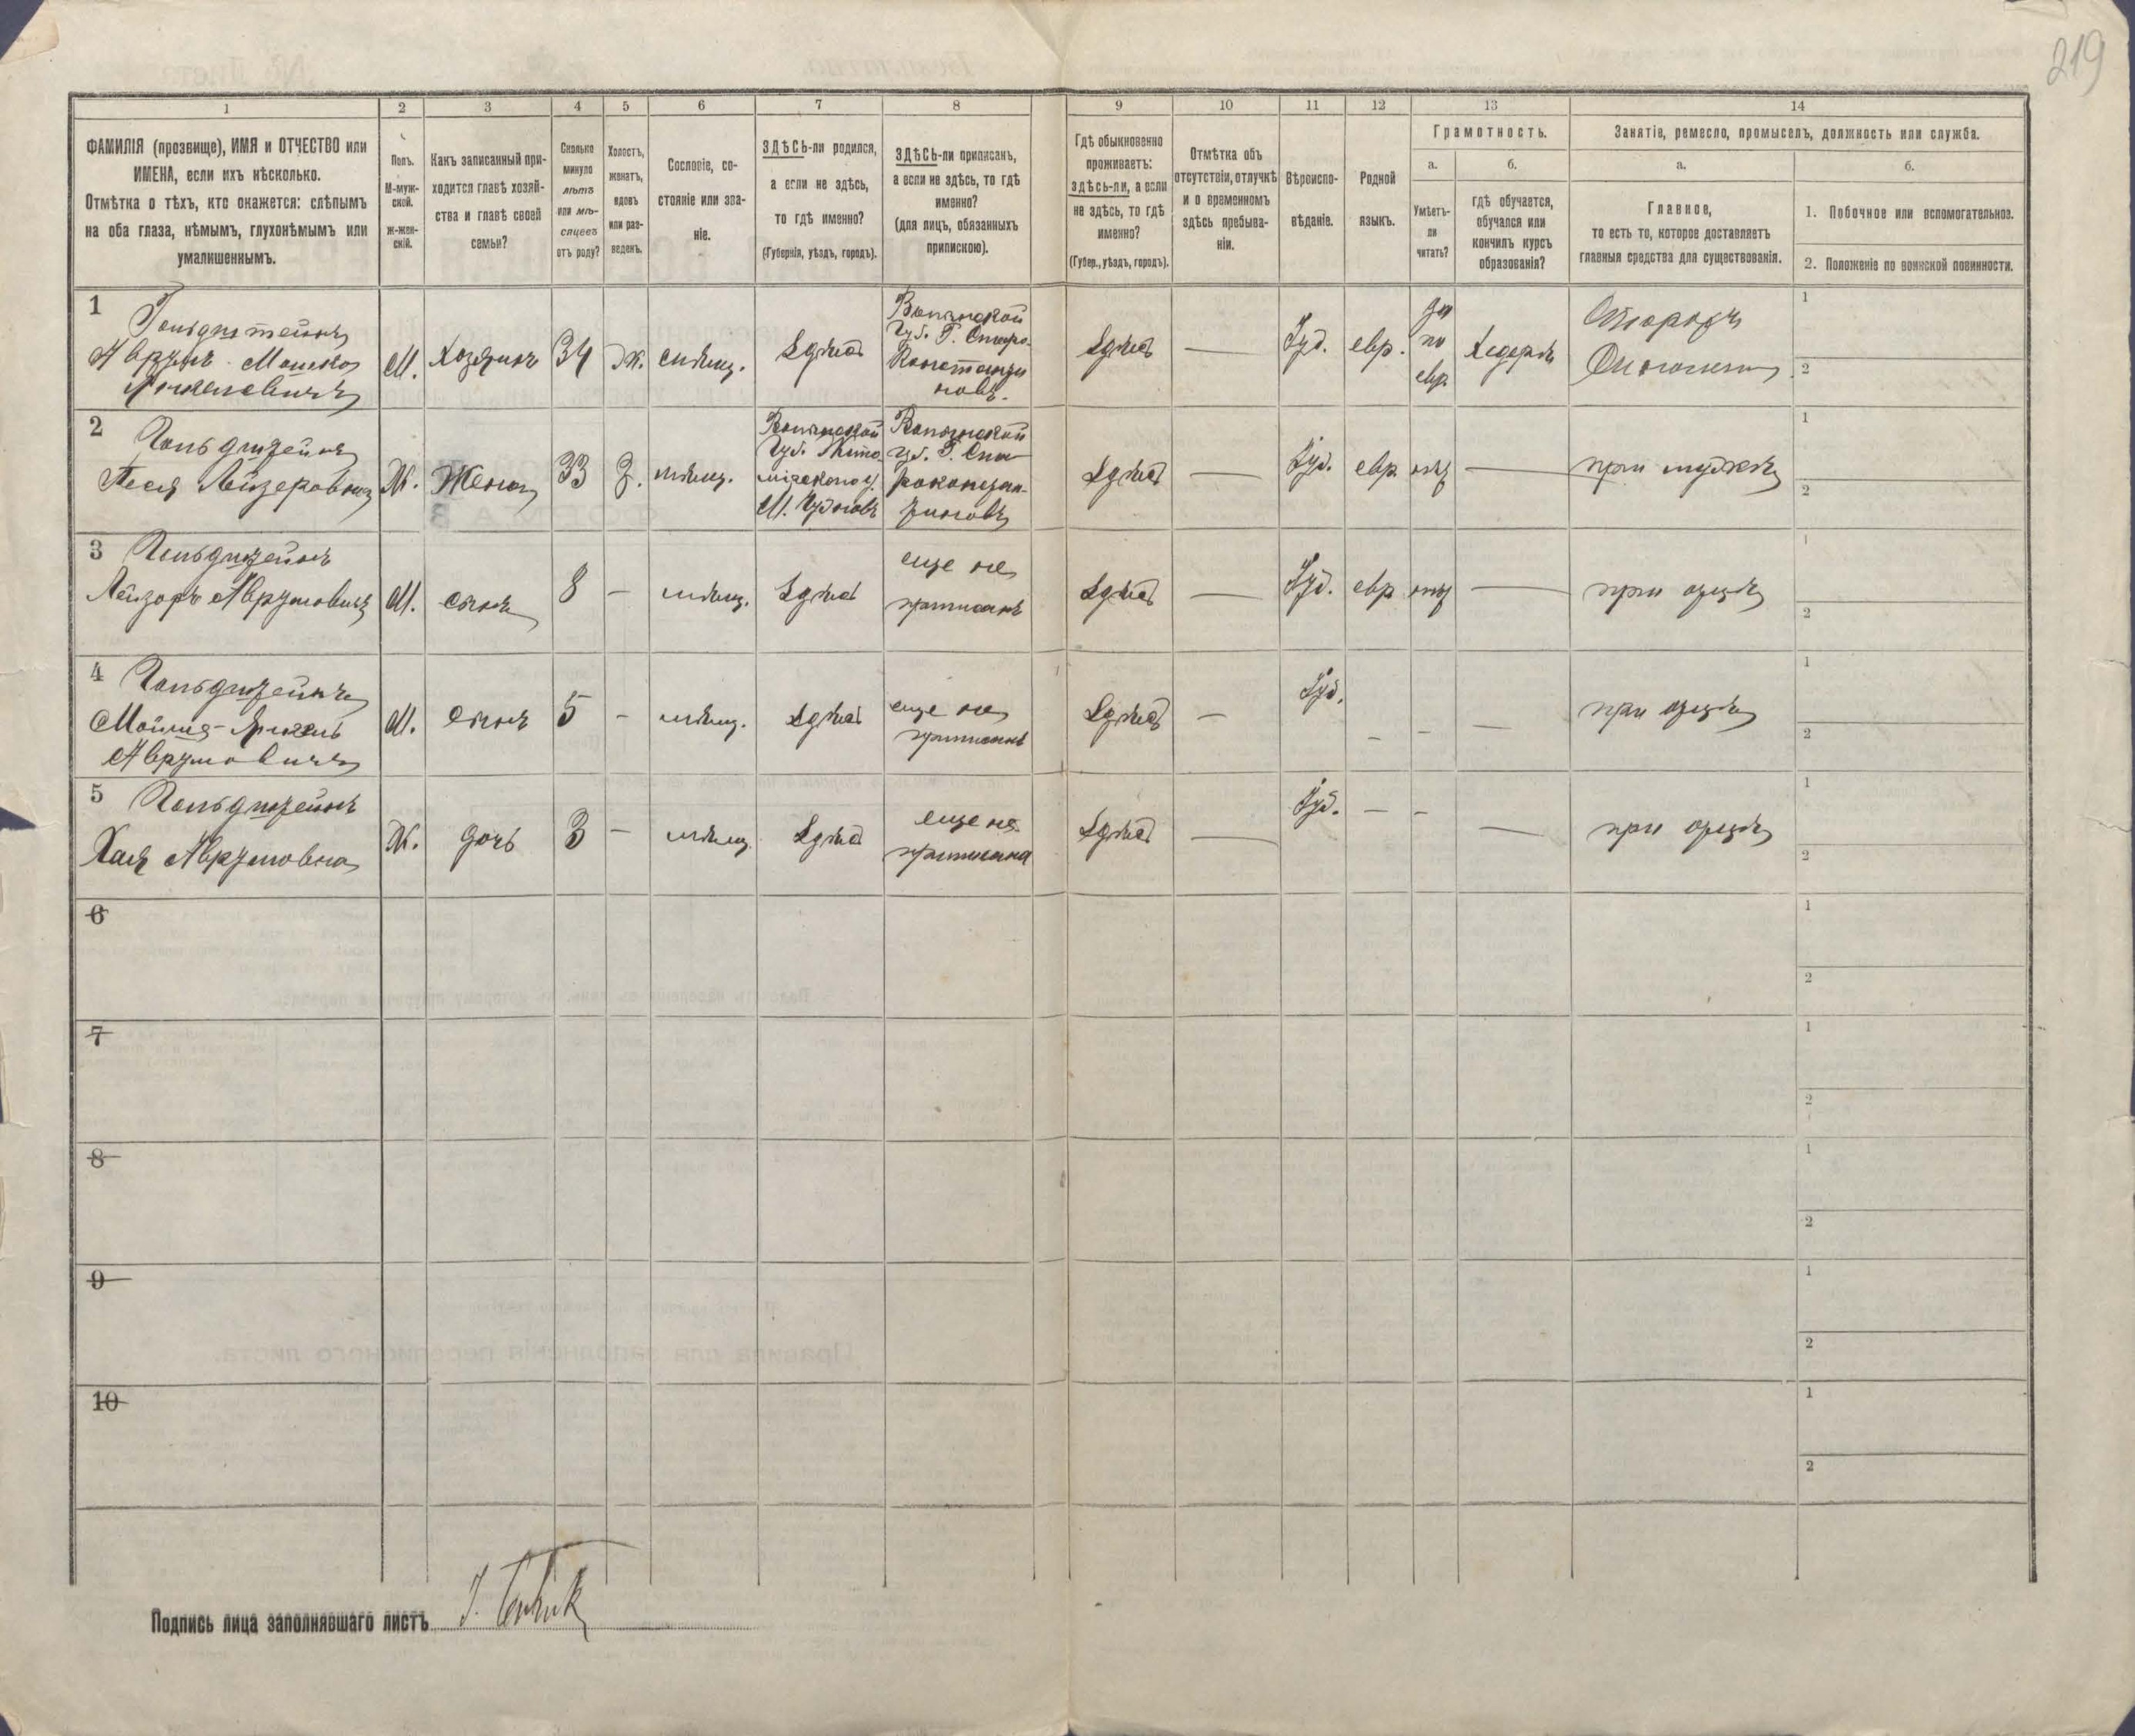 219
1
2
3
4
5
6
7
8
9
10
11
12
13
14
ФАМИЛІЯ (прозвище), ИМЯ и ОТЧЕСТВО или
ИМЕНА, если ихъ нѣсколько.
Отмѣтка о тѣхъ, кто окажется: слѣпымъ
на оба глаза, нѣмымъ, глухонѣмымъ или
умалишеннымъ.
Полъ.
М-муж-
ской.
ж-жен-
скій.
Какъ записанный при-
ходится главѣ хозяй-
ства и главѣ своей
семьи?
Сколько
минуло
лѣтъ
или мѣ-
сяцевъ
отъ роду?
Холостъ,
женатъ,
вдовъ
или раз-
веденъ.
Сословіе, со-
стояніе или зва-
ніе.
ЗДѢСЬ-ли родился,
а если не здѣсь,
то гдѣ именно?
(Губернія, уѣздъ, городъ).
ЗДѢСЬ-ли приписанъ,
а если не здѣсь, то гдѣ
именно?
(для лицъ, обязанныхъ
припискою).
Гдѣ обыкновенно
проживаетъ:
здѣсь-ли, а если
не здѣсь, то гдѣ
именно?
(Губер., уѣздъ, городъ).
Отмѣтка объ
отсутствіи, отлучкѣ
и о временномъ
здѣсь пребыва-
ніи.
Вѣроиспо-
вѣданіе.
Родной
языкъ.
Грамотность.
а.
Умѣетъ-
ли
читать?
б.
гдѣ обучается,
обучался или
кончилъ курсъ
образованія?
Занятіе, ремесло, промыселъ, должность или служба.
а.
Главное,
то есть то, которое доставляетъ
главныя средства для существованія.
б.
1. Побочное или вспомогательное.
2. Положеніе по воинской повинности.
1
Гольдштейнъ
Аврумъ Мошко
М.
Хозяинъ
34
ж.
мѣщ.
Здѣсь
Волынской
Губ. Г. Старо-
Константи
новъ.
Здѣсь
—
Іуд.
евр.
да
по
евр
Хедеръ
1
2
2
Гольдштейнъ
Песя Лейзеровна
Ж.
Жена
33
З.
мѣщ.
Волынской
Губ. Жито
мірскаго у.
М. Чудновъ
Волынской
губ. Г. Ста-
роконстан-
тиновъ
Здѣсь
—
Іуд.
евр
нѣт
—
при мужѣ
1
2
3
Гольдштейнъ
Лейзоръ Аврумовичъ
М.
сынъ
8
—
мѣщ.
Здѣсь
еще не
приписанъ
Здѣсь
—
Іуд.
евр
нѣт
—
при отцѣ
1
2
4
Гольдштейнъ
Аврумовичъ
М.
сынъ
5
—
мѣщ.
Здѣсь
еще не
приписанъ
Здѣсь
—
Іуд.
—
—
—
при отцѣ
1
2
5
Гольдштейнъ
Хая Аврумовна
Ж.
дочь
3
—
мѣщ.
Здѣсь
еще не
приписана
Здѣсь
—
Іуд.
—
—
—
при отцѣ
1
2
6
1
2
7
1
2
8
1
2
9
1
2
10
1
2
Подпись лица заполнявшаго листъ